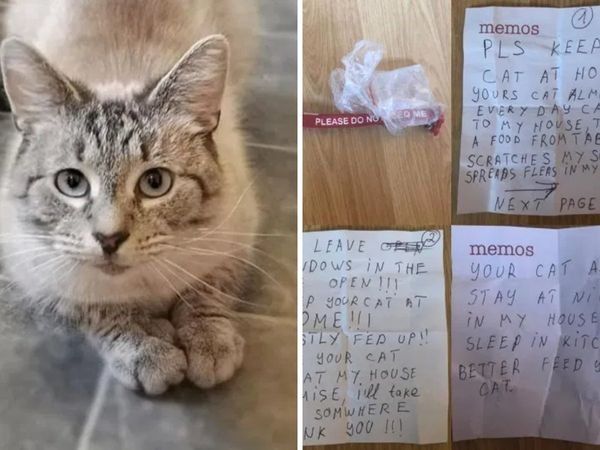 PLEASE DO NO EED ME
memos 1
PLS KEEP
CAT AT HO
YOURS CAT ALM
EVERY DAY CA
TO MY HOUSE, T
A FOOD FROM TAB
SCRATCHES MY S
SPREADS FLEAS IN MY
NEXT PAGE
LEAVE 2
NDOWS IN THE
OPEN!!!
P YOUR CAT AT
OME!!!
STLY FED UP!!
YOUR CAT
AT MY HOUSE
MISE, ill take
SOMWHERE
NK YOU !!!
memos
YOUR CAT A
STAY AT NI
IN MY HOUSE
SLEEP IN KITC
BETTER FEED Y
CAT.